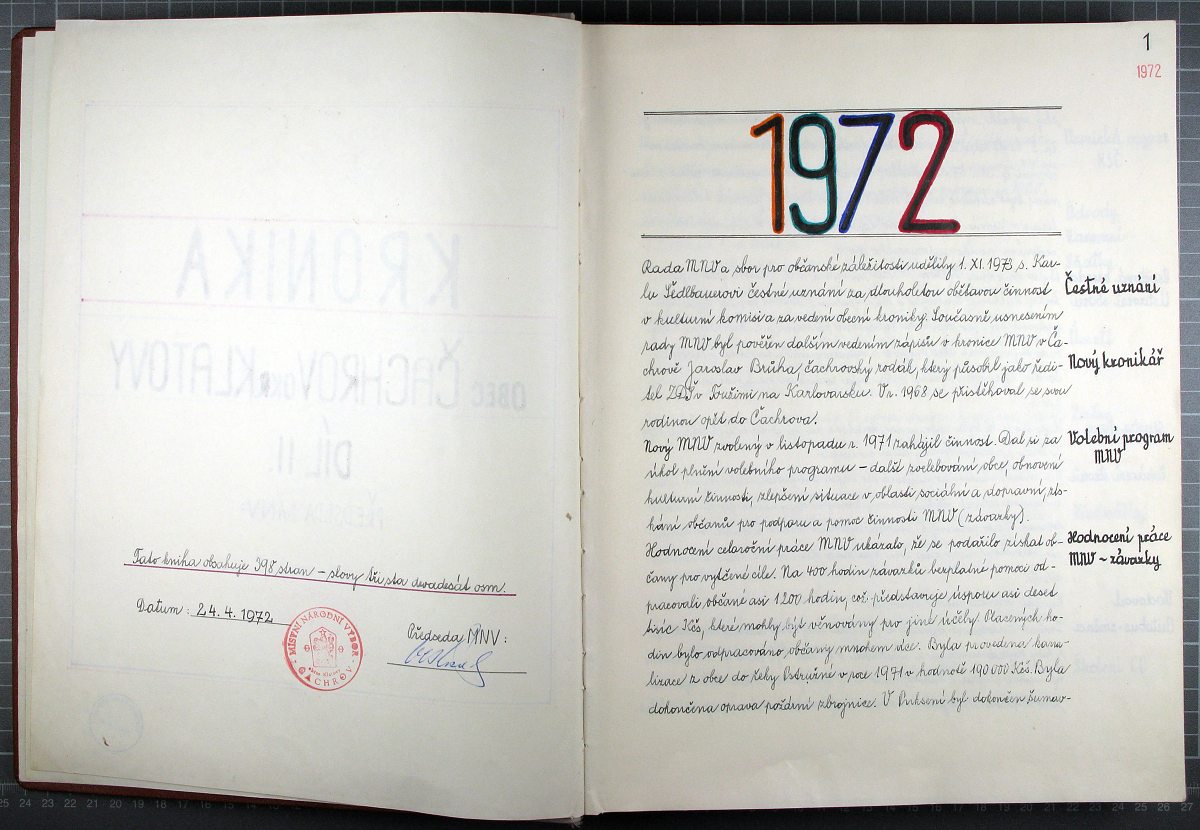 Tato kniha obsahuje 398 stran – slovy tři sta devadesát osm.
Datum: 24. 4. 1972
MÍSTNÍ NÁRODNÍ VÝBOR
ČACHROV
Předseda MNV:
1
1972
1972
Rada MNV a sbor pro občanské záležitosti udělily 1. XI. 1973 s. Kar-
lu Sedlbauerovi čestné uznání za dlouholetou obětavou činnost
v kulturní komisi a za vedení obecní kroniky. Současně usnesením
rady MNV byl pověřen dalším vedením zápisů v kronice MNV v Ča-
chrově Jaroslav Brůha, čachrovský rodák, který působil jako ředi-
tel ZDŠ v Toužimi na Karlovarsku. V r. 1968 se přistěhoval se svou
rodinou opět do Čachrova.
Nový MNV zvolený v listopadu r. 1971 zahájil činnost. Dal si za
úkol plnění volebního programu – další zvelebování obce, obnovení
kulturní činnosti, zlepšení situace v oblasti sociální a dopravní, zís-
kání občanů pro podporu a pomoc činnosti MNV (závazky).
Hodnocení celoroční práce MNV ukázalo, že se podařilo získat ob-
čany pro vytčené cíle. Na 400 hodin závazků bezplatné pomoci od-
pracovali občané asi 1200 hodin, což představuje úsporu asi deset
tisíc Kčs, které mohly být věnovány pro jiné účely. Placených ho-
din bylo odpracováno občany mnohem více. Byla provedena kana-
lizace z obce do řeky Ostružné v roce 1971 v hodnotě 190 000 Kčs. Byla
dokončena oprava požární zbrojnice. V Chřepicích byl dokončen šumav-
Čestné uznání
Nový kronikář
Volební program
MNV
Hodnocení práce
MNV – závazky
KRONIKA
OBEC ČACHROV OKR. KLATOVY
DÍL II.